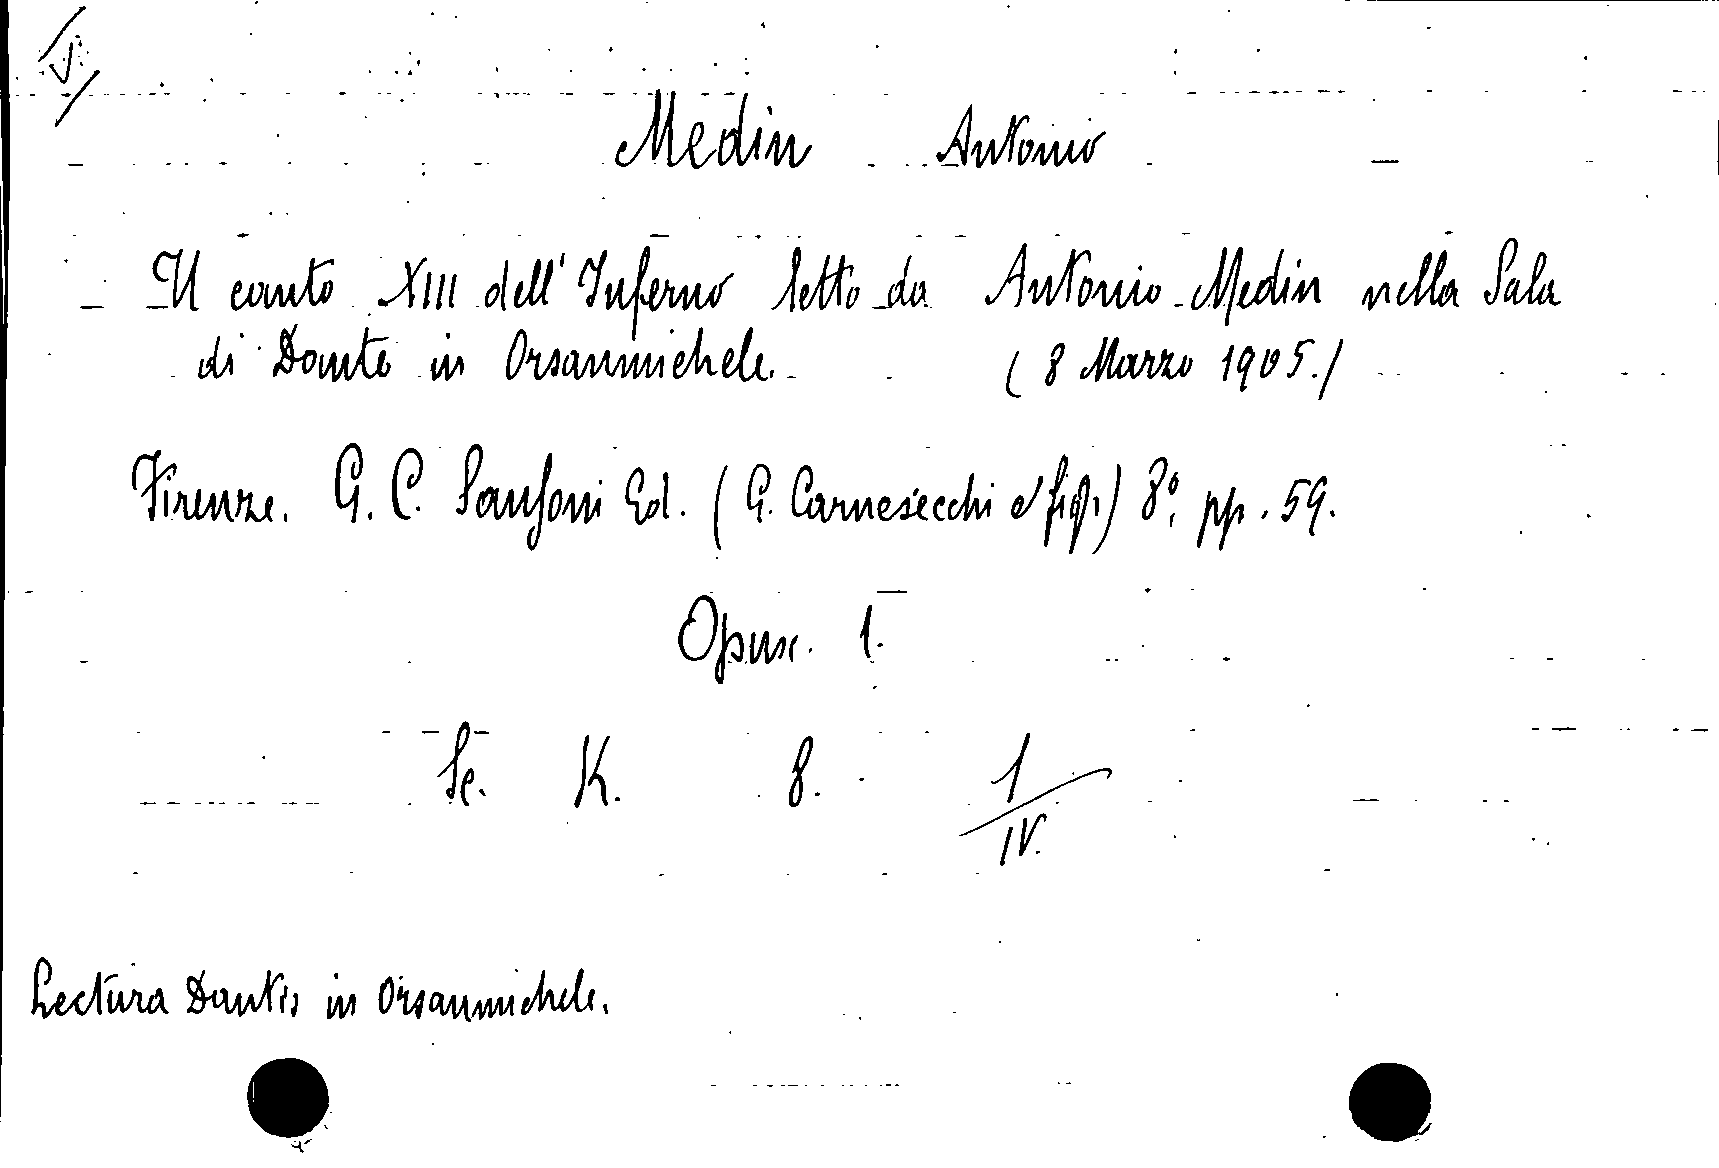 V
Medin Antonio
Il canto XIII dell' Inferno letto da Antonio Medin nella Sala
di Dante in Orsanmichele. (8 Marzo 1905.)
Firenze. G. C. Sansoni Ed. (G. Carnesecchi e figl.) 8º, pp. 59.
Opusc. 1.
Sc. K. 8. 1/IV.
Lectura Dantis in Orsanmichele.